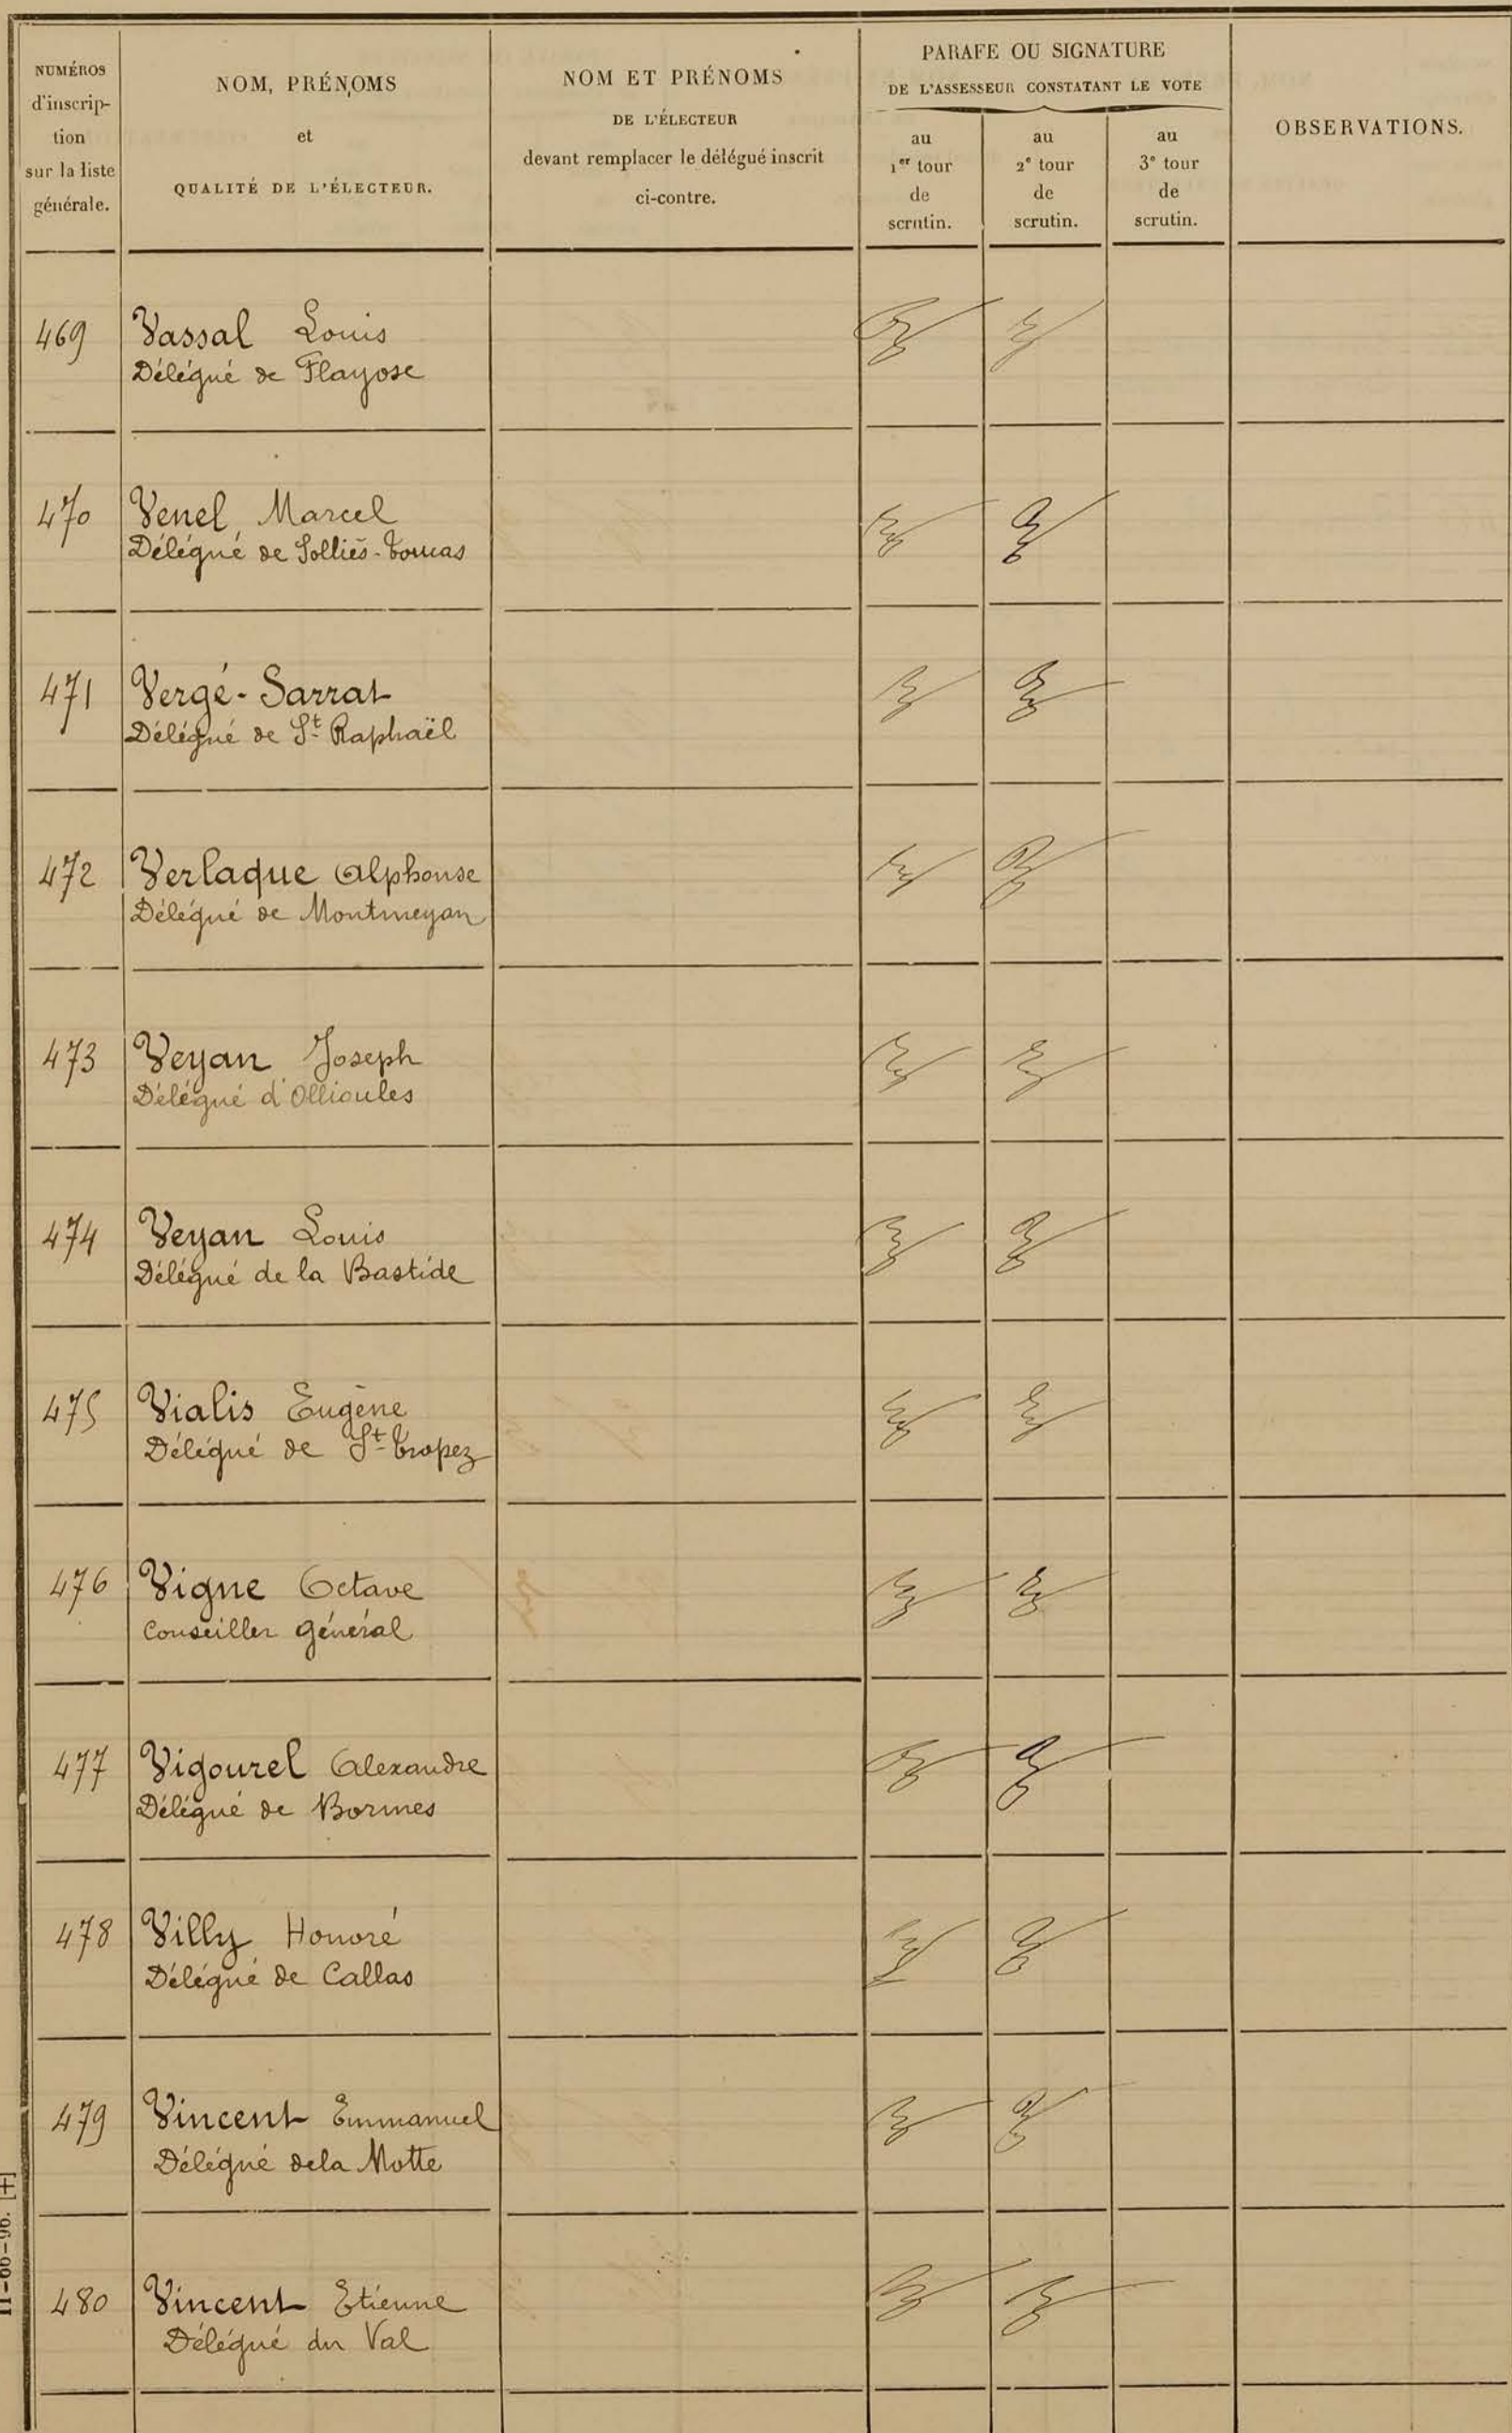 NUMÉROS
d'inscrip-
tion
sur la liste
générale.
NOM, PRÉNOMS
et
QUALITÉ DE L'ÉLECTEUR.
NOM ET PRÉNOMS
DE L'ÉLECTEUR
devant remplacer le délégué inscrit
ci-contre.
PARAFE OU SIGNATURE
DE L'ASSESSEUR CONSTATANT LE VOTE
au
1er tour
de
scrutin.
au
2e tour
de
scrutin.
au
3e tour
de
scrutin.
OBSERVATIONS.
469 Vassal Louis
Délégué de Flayosc
470 Venel Marcel
Délégué de Solliès-Toucas
471 Vergé-Sarrat
Délégué de St Raphaël
472 Verlaque Alphonse
Délégué de Montmeyan
473 Veyan Joseph
Délégué d'Ollioules
474 Veyan Louis
Délégué de la Bastide
475 Vialis Eugène
Délégué de St-Tropez
476 Vigne Octave
Conseiller général
477 Vigourel Alexandre
Délégué de Bormes
478 Villy Honoré
Délégué de Callas
479 Vincent Emmanuel
Délégué de la Motte
480 Vincent Etienne
Délégué du Val